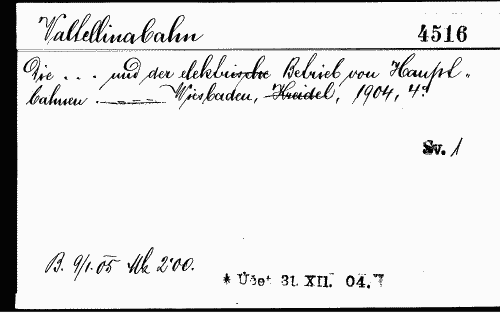 Valtellinabahn 4516
Die ... und der elektrische Betrieb von Haupt-
bahnen. Wiesbaden, Kreidel, 1904, 4°.
Sv. 1
B. 9/1. 05 Mk 2·00.
* Účet 31. XII. 04.